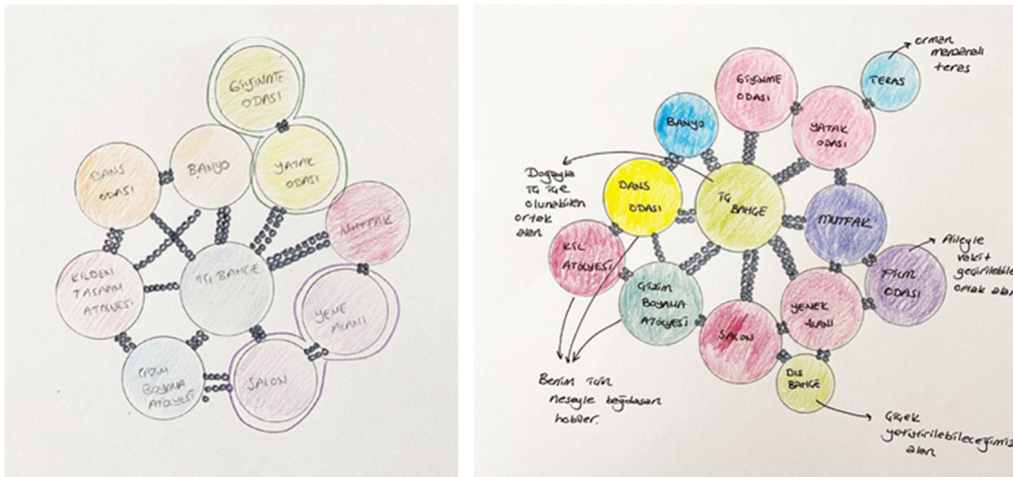 GİYİNME
ODASI
DANS
ODASI
BANYO
YATAK
ODASI
MUTFAK
KİLDEN
TASARIM
ATÖLYESİ
İÇ BAHÇE
YEME
ALANI
ÇİZİM
BOYAMA
ATÖLYESİ
SALON
orman
manzaralı
teras
GİYİNME
ODASI
TERAS
BANYO
YATAK
ODASI
Doğayla
iç içe
olunabilen
ortak
alan
DANS
ODASI
İÇ
BAHÇE
MUTFAK
KİL
ATÖLYESİ
Aileyle
vakit
geçirilebilen
ortak alan
ÇİZİM
BOYAMA
ATÖLYESİ
FİLM
ODASI
YEMEK
ALANI
SALON
DIŞ
BAHÇE
Benim için
neşeyle bağdaşan
hobiler.
Çiçek
yetiştirilebileceğimiz
alan